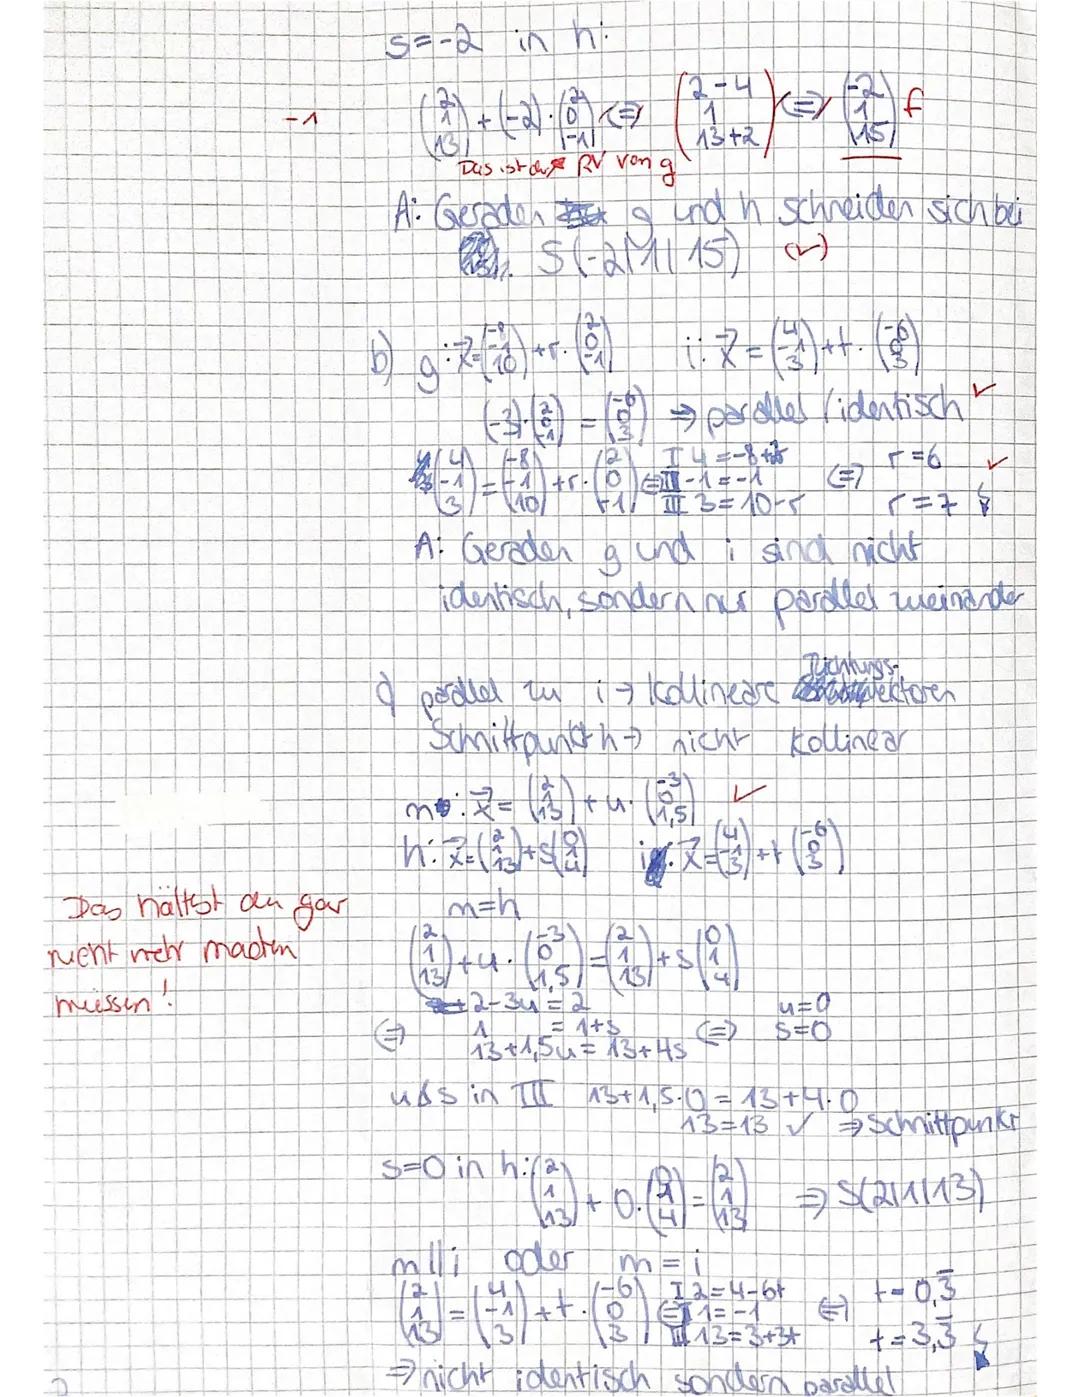 s=-2 in h:
-1
(2 1 13) + (-2) · (2 0 -1) <=> (2-4 1 13+2) <=> (-2 1 15) f
Das ist der RV von g
A: Geraden g und h schneiden sich bei
S(-2|1|15) (✓)
b) g: x⃗ = (-8 -1 10) + r · (2 0 -1) i: x⃗ = (4 -1 3) + t · (-6 0 3)
(-3) · (2 0 -1) = (-6 0 3) ⇒ parallel / identisch ✓
(4 -1 3) = (-8 -1 10) + r · (2 0 -1) <=> I 4 = -8 + 2r <=> r=6 ✓
II -1 = -1
III 3 = 10 - r r = 7 ↯
A: Geraden g und i sind nicht
identisch, sondern nur parallel zueinander
c) parallel zu i → kollineare Richtungs-
vektoren
Schnittpunkt h → nicht kollinear
m: x⃗ = (2 1 13) + u · (-3 0 1,5) ✓
h: x⃗ = (2 1 13) + s (0 1 4) i: x⃗ = (4 -1 3) + t (-6 0 3)
Das hättest du gar
nicht mehr machen
müssen!
m=h
(2 1 13) + u · (-3 0 1,5) = (2 1 13) + s (0 1 4)
2-3u = 2 u=0
<=> 1 = 1+s <=> s=0
13+1,5u = 13+4s
u & s in III 13+1,5·0 = 13+4·0
13=13 ✓ ⇒ Schnittpunkt
s=0 in h: (2 1 13) + 0 · (0 1 4) = (2 1 13) ⇒ S(2|1|13)
m||i oder m=i
(2 1 13) = (4 -1 3) + t · (-6 0 3) <=> I 2=4-6t <=> t=0,3̅
II 1=-1
III 13=3+3t t=3,3̅ ↯
⇒ nicht identisch sondern parallel